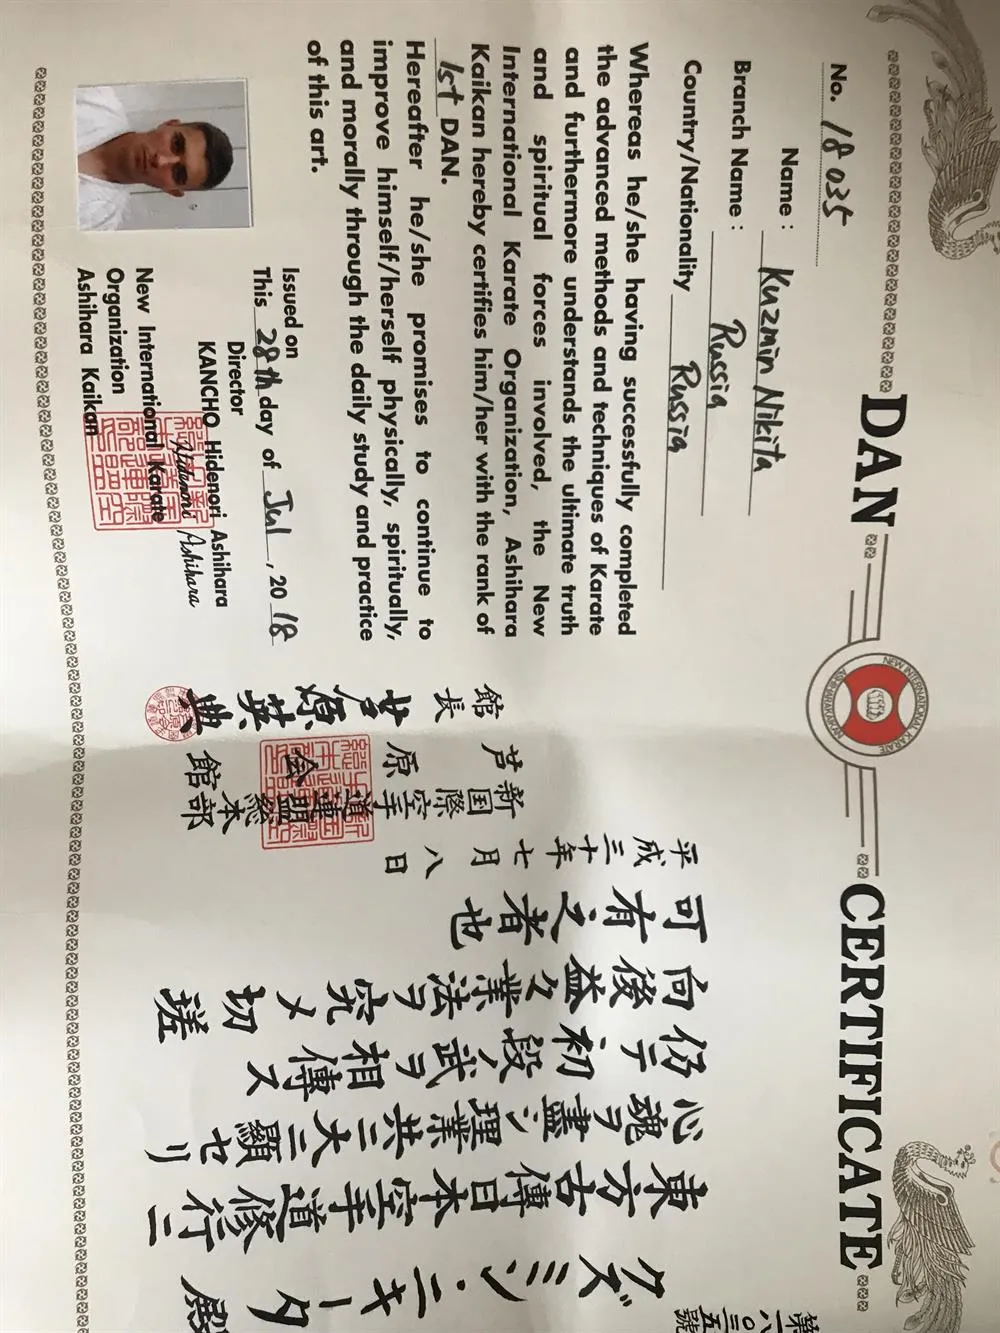 DAN CERTIFICATE
NEW INTERNATIONAL KARATE
ASHIHARAKAIKAN
No. 18035
Name : Kuzmin Nikita
Branch Name : Russia
Country/Nationality Russia
Whereas he/she having successfully completed
the advanced methods and techniques of Karate
and furthermore understands the ultimate truth
and spiritual forces involved, the New
International Karate Organization, Ashihara
Kaikan hereby certifies him/her with the rank of
1st DAN.
Hereafter he/she promises to continue to
improve himself/herself physically, spiritually,
and morally through the daily study and practice
of this art.
Issued on
This 28th day of Jul, 2018
Director
KANCHO Hidenori Ashihara
Hidenori Ashihara
New International Karate
Organization
Ashihara Kaikan
第一八〇三五號
クズミン・ニキータ殿
東方古傳日本空手道修行ニ
心魂ヲ盡シ理業共ニ大ニ顯セリ
仍テ初段ノ武ヲ相傳ス
向後益々業法ヲ究メ切瑳
可有之者也
平成三十年七月八日
新国際空手道連盟総本部
芦原会館
館長 芦原英典